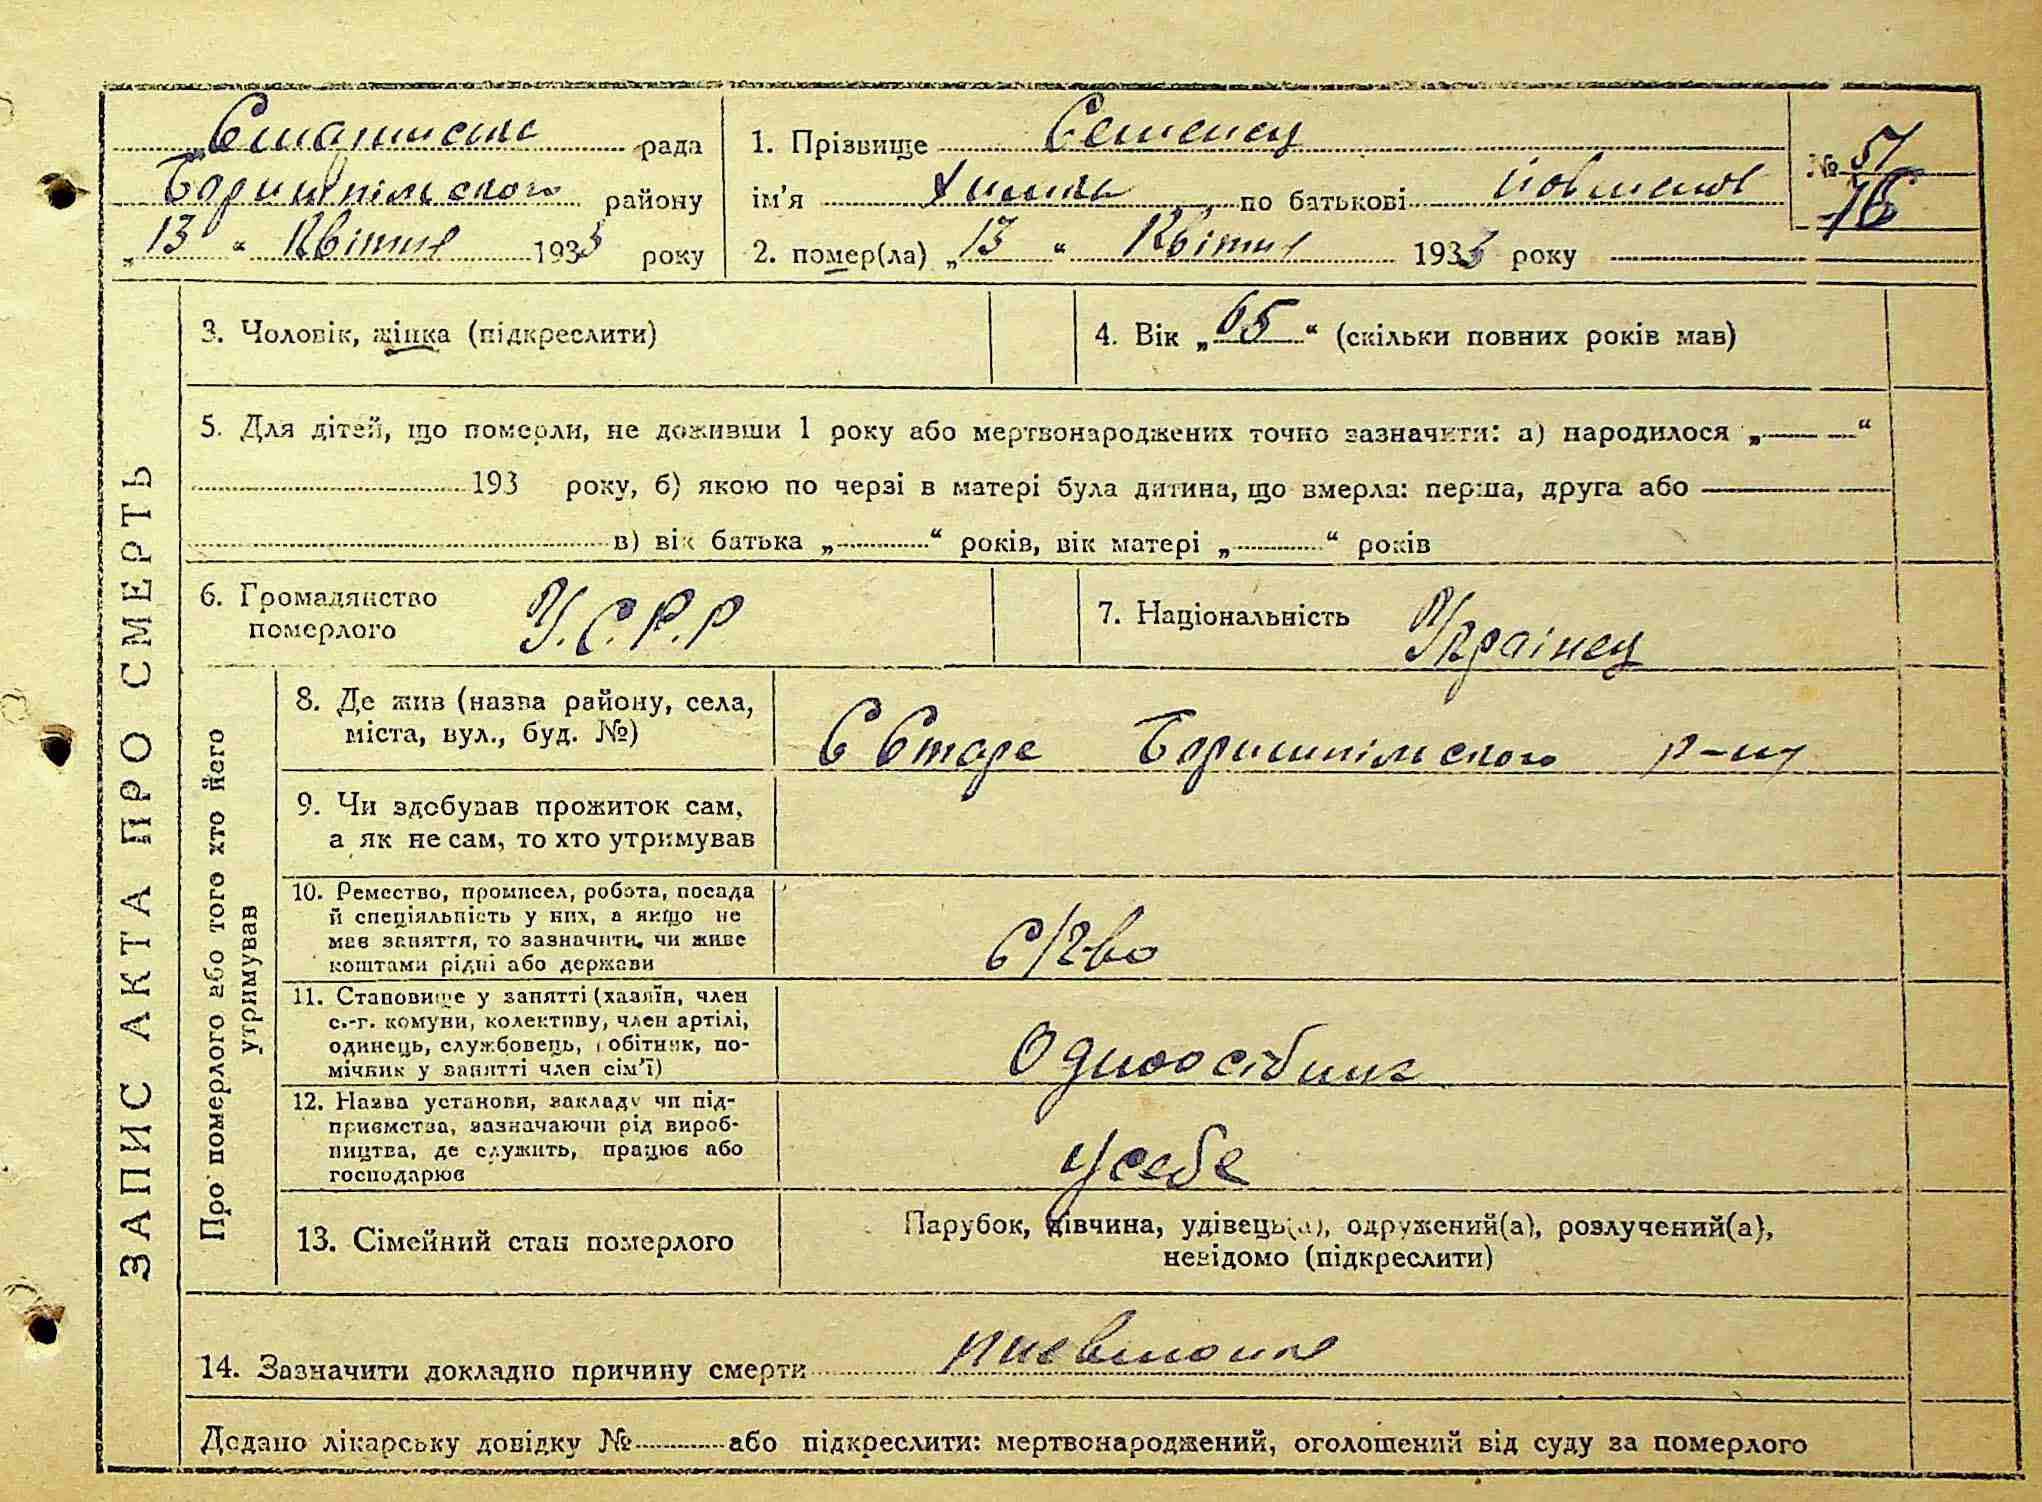 рада
Бориспільського району
„13“ Квітня 1933 року
1. Прізвище Семенец
ім'я Химка по батькові
2. помер(ла) „13“ Квітня 1933 року
№ 51
16
ЗАПИС АКТА ПРО СМЕРТЬ
3. Чоловік, жінка (підкреслити)
4. Вік „65“ (скільки повних років мав)
5. Для дітей, що померли, не доживши 1 року або мертвонароджених точно зазначити: а) народилося „ “
193 року, б) якою по черзі в матері була дитина, що вмерла: перша, друга або
в) вік батька „ “ років, вік матері „ “ років
6. Громадянство
померлого
У.С.Р.Р
7. Національність Українец
Про померлого або того хто його
утримував
8. Де жив (назва району, села,
міста, вул., буд. №)
С Старе Боришпільского р-ну
9. Чи здобував прожиток сам,
а як не сам, то хто утримував
10. Ремество, промисел, робота, посада
й спеціяльність у них, а якщо не
мав заняття, то зазначити, чи живе
коштами рідні або держави
С/г-во
11. Становище у занятті (хазяїн, член
с.-г. комуни, колективу, член артілі,
одинець, службовець, обітник, по-
мічник у занятті член сім'ї)
Одноосібник
12. Назва установи, закладу чи під-
приємства, зазначаючи рід вироб-
ництва, де служить, працює або
господарює
У себе
13. Сімейний стан померлого
Парубок, дівчина, удівець(а), одружений(а), розлучений(а),
невідомо (підкреслити)
14. Зазначити докладно причину смерти пневмонія
Додано лікарську довідку № або підкреслити: мертвонароджений, оголошений від суду за померлого